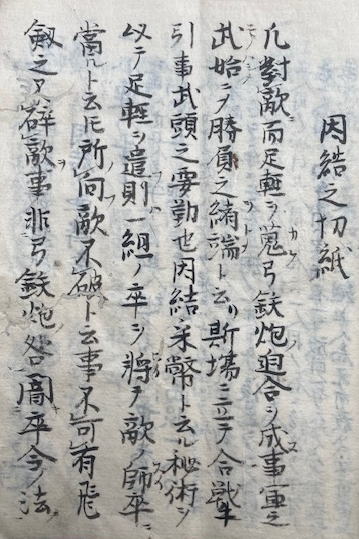 因結之切紙
凡對敵而足軽ヲ蒐弓鉄炮迫合ヲ成事軍之
武始ニ乄勝負之緒端ト云リ斯場ニ立テ合戦ヲ
引事武頭之要勤也因結采幣ト云ル秘術ヲ
以テ足軽ヲ遣則一組ノ卒ヲ将テ敵ノ師卒ニ
當ルト云𪜈所向敵不破ト云事不可有飛
剱之ヿ碎敵事非弓鉄炮咎闇卒令ノ法